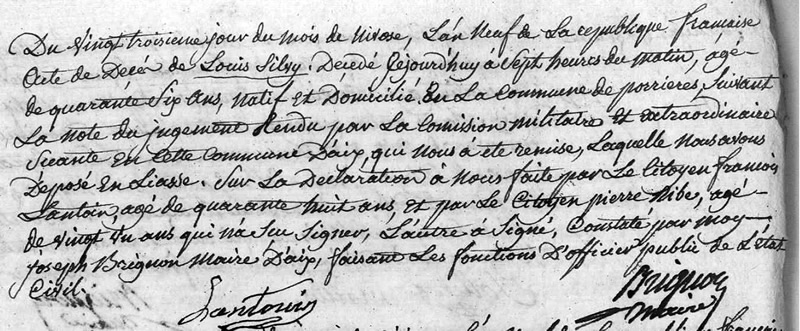 Du vingt troisieme jour du mois de nivose, L'an Neuf de La republique francaise
Acte de Decés de Louis Silvy. Décedé Cejourd'huy à Sept heures du matin, agé
de quarante Six Ans, Natif Et Domicilié En La Commune de porrieres, Suivant
La note du jugement Rendu par La Comision militaire Et Extraordinaire
Sceante En Cette Commune D'aix, qui nous à eté remise, Laquelle Nous avons
Déposé En Liasse. Sur La Déclaration à Nous faite par Le Citoyen francois
Lantoin, agé de quarante huit ans Et par Le Citoyen pierre Ribe, agé
de vingt Un ans qui n'a Scu Signer, L'autre à Signé, Constaté par moy
joseph Brignon Maire D'aix, faisant Les fonctions D'officier public de L'état
Civil.
Lantouin
Brignon
maire